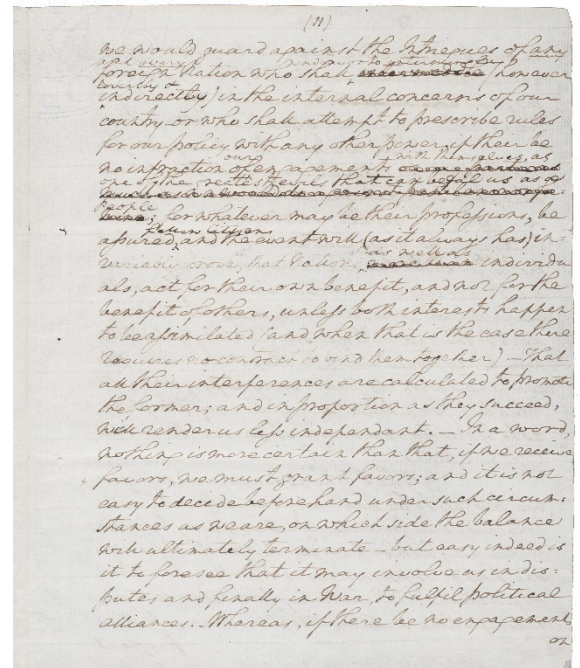 (11)
we would guard against the Intriegues of any
and every endeavor to intermingle
foreign Nation who shall however
covertly &
indirectly) in the internal concerns of our
country—or who shall attempt to prescribe rules
for our policy with any other power, if there be
our with themselves, as
no infraction of engagements
one of the greatest evils that can befal us as a
people
; for whatever may be their professions, be
fellow Citizens
assured and the event will (as it always has) in
as well as
variably prove, that Nations individu
als, act for their own benefit, and not for the
benefit of others, unless both interests happen
to be assimilated (and when that is the case there
requires no contract to bind them together)—That
all their interferences are calculated to promote
the former; and in proportion as they succeed,
will render us less independant.—In a word,
nothing is more certain than that, if we receive
favors, we must grant favors; and it is not
easy to decide beforehand under such circum-
stances as we are, on which side the balance
will ultimately terminate—but easy indeed is
it to foresee that it may involve us in dis=
putes and finally in War, to fulfil political
alliances.—Whereas, if there be no engagements
on